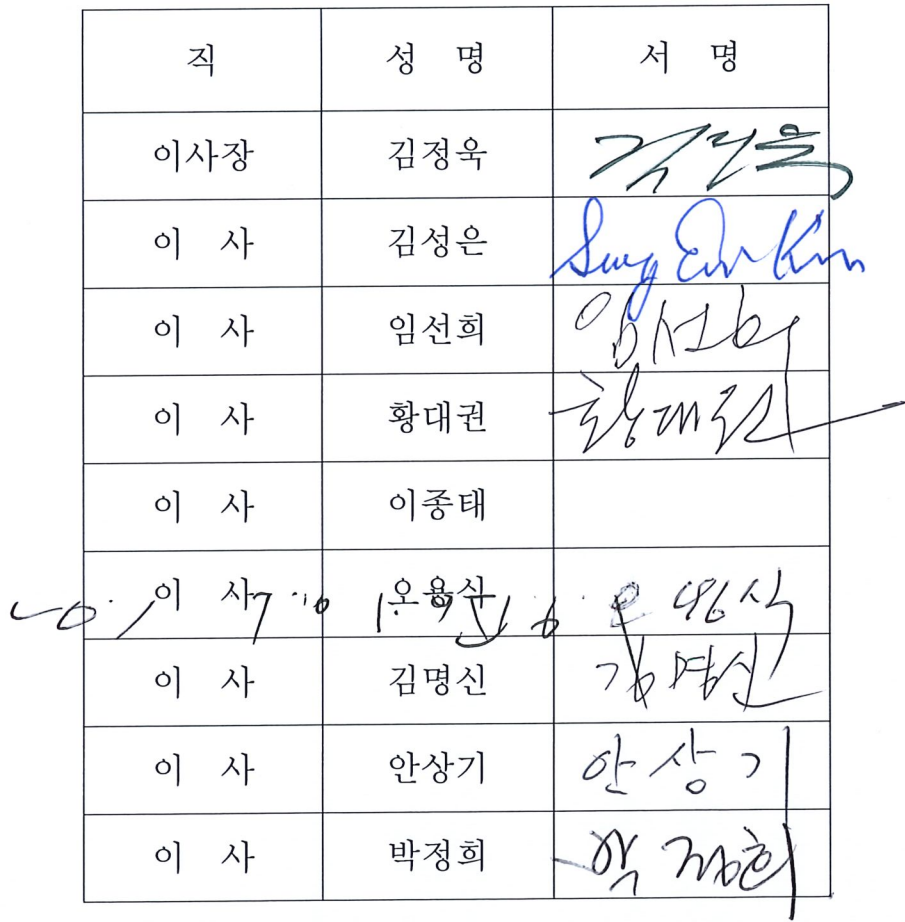 직 성 명 서 명
이사장 김정욱 김정욱
이 사 김성은 Sung Eun Kim
이 사 임선희 임선희
이 사 황대권 황대권
이 사 이종태
이 사 오용식 오용식
이 사 김명신 김명신
이 사 안상기 안상기
이 사 박정희 박정희